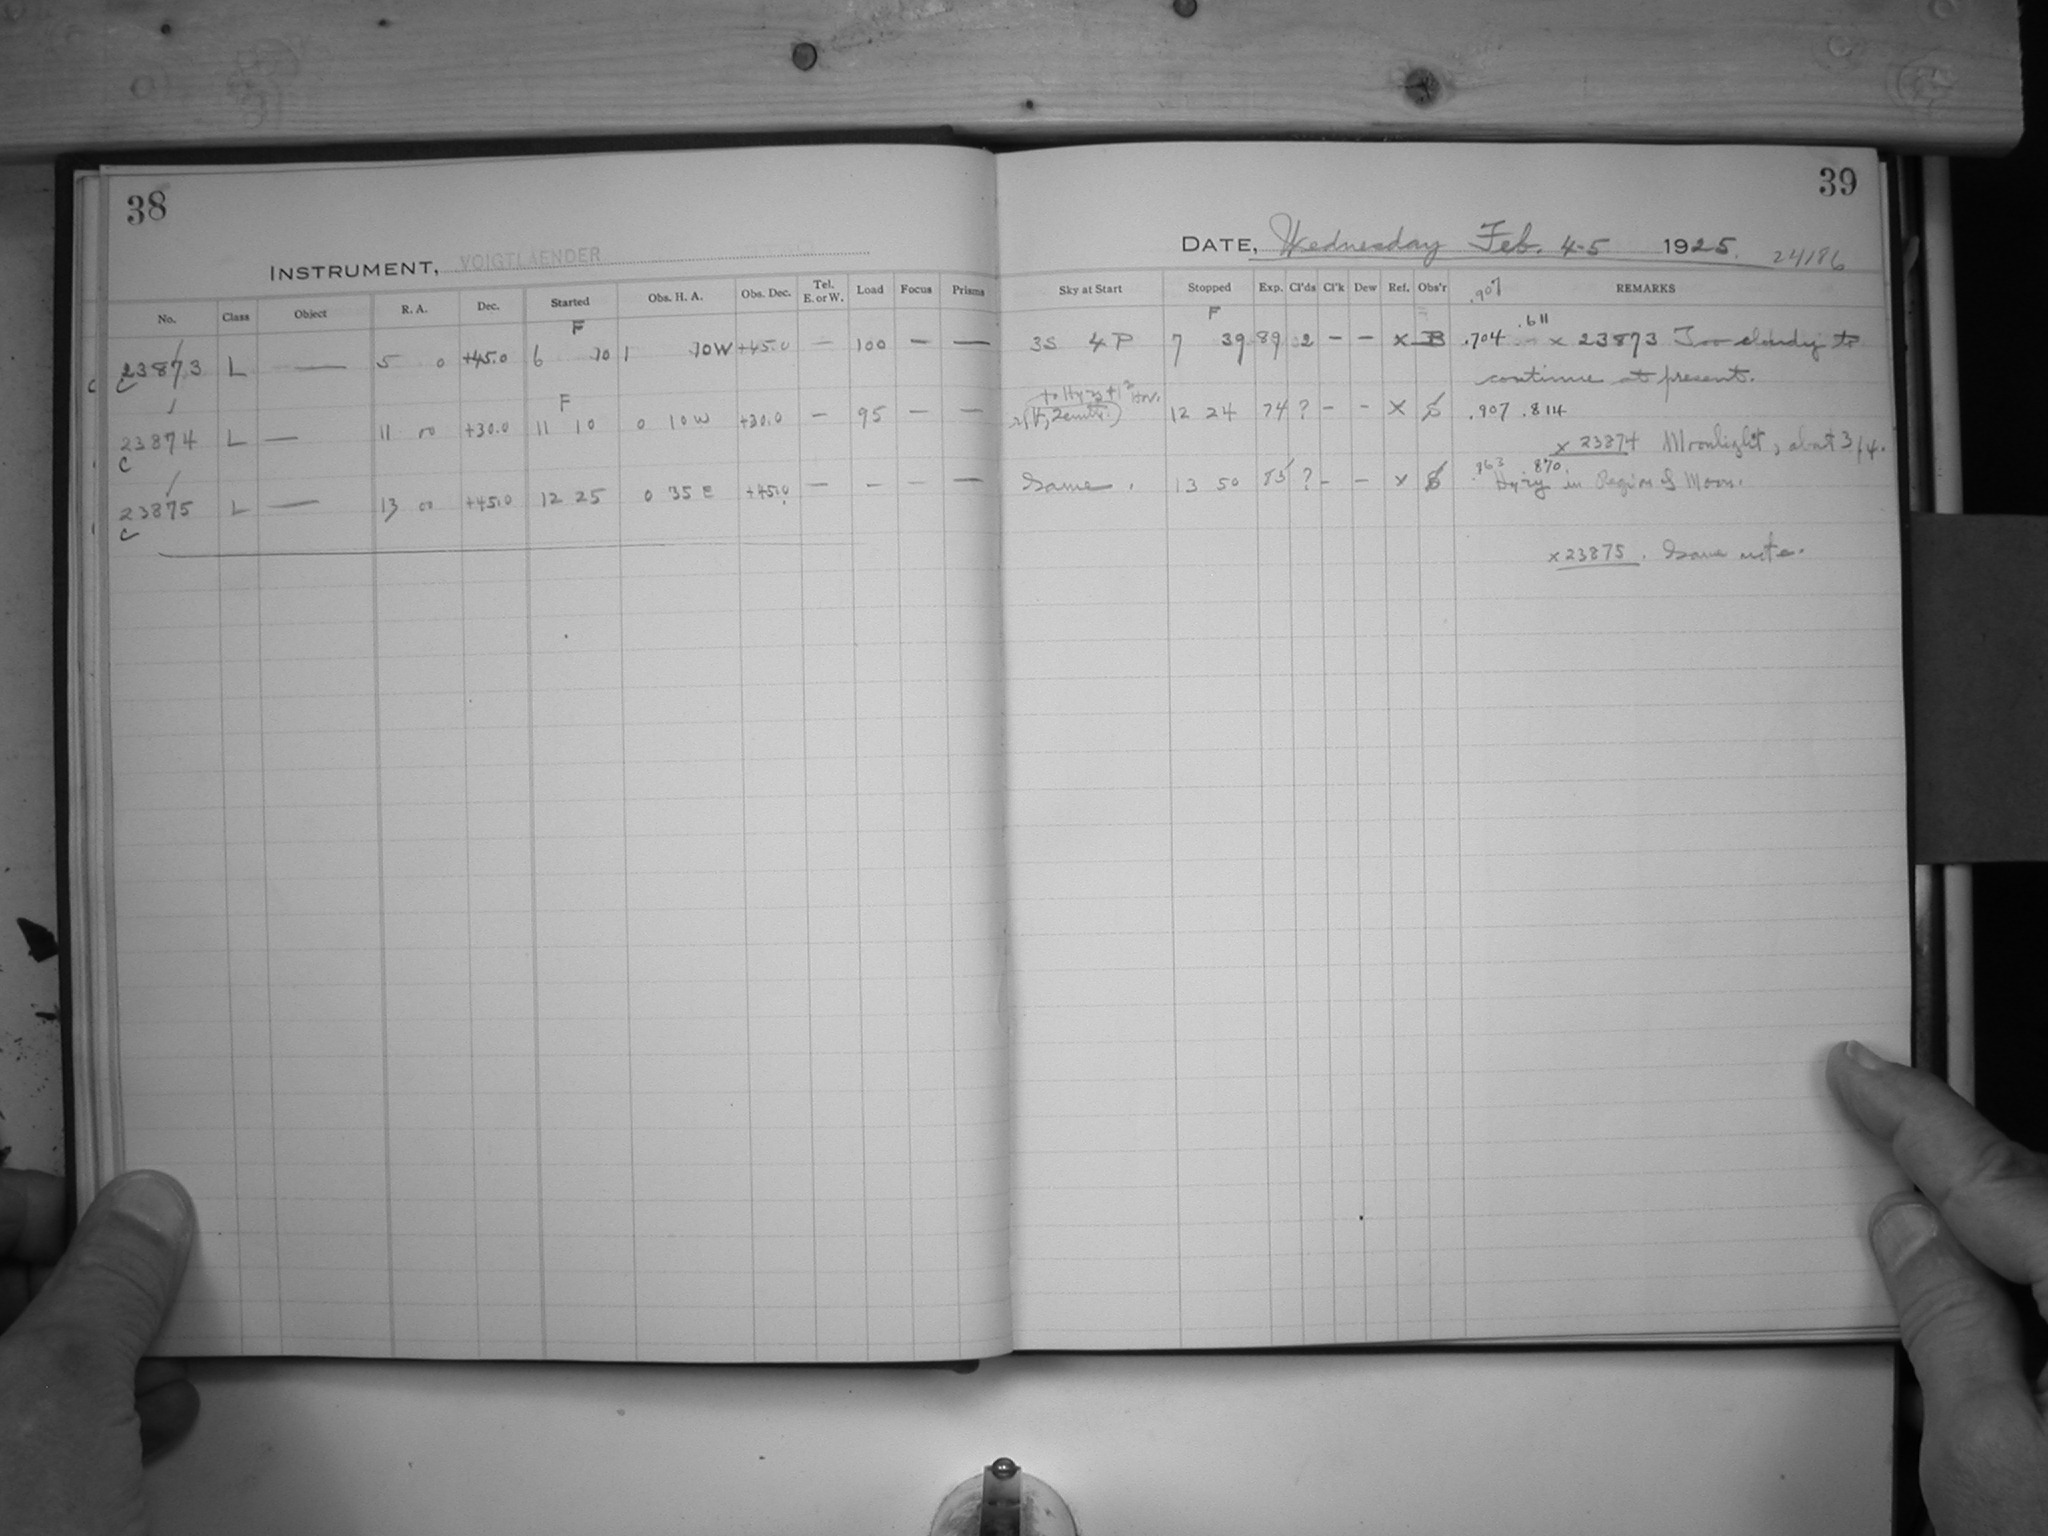 38
INSTRUMENT, VOIGTLAENDER
No. Class Object R. A. Dec. Started Obs. H. A. Obs. Dec. Tel. E. or W. Load Focus Prisms
F
23873 L — 5 0 +45.0 6 10 1 10W +45.0 — 100 — —
C
F
23874 L — 11 00 +30.0 11 10 0 10W +30.0 — 95 — —
C
23875 L — 13 00 +45.0 12 25 0 35 E +45.0 — — — —
C
39
DATE, Wednesday Feb. 4-5 1925.
24186
Sky at Start Stopped Exp. Cl'ds Cl'k Dew Ref. Obs'r REMARKS
.907
F
.611
3S 4P 7 39 89 2 — — x B .704 x 23873 Too cloudy to
continue at present.
12 24 74 ? — — x .907 .814
x 23874 Moonlight, about 3/4.
.863 .870
Same. 13 50 85 ? — — x Hy-zy in Region of Moon.
x 23875. Same note.